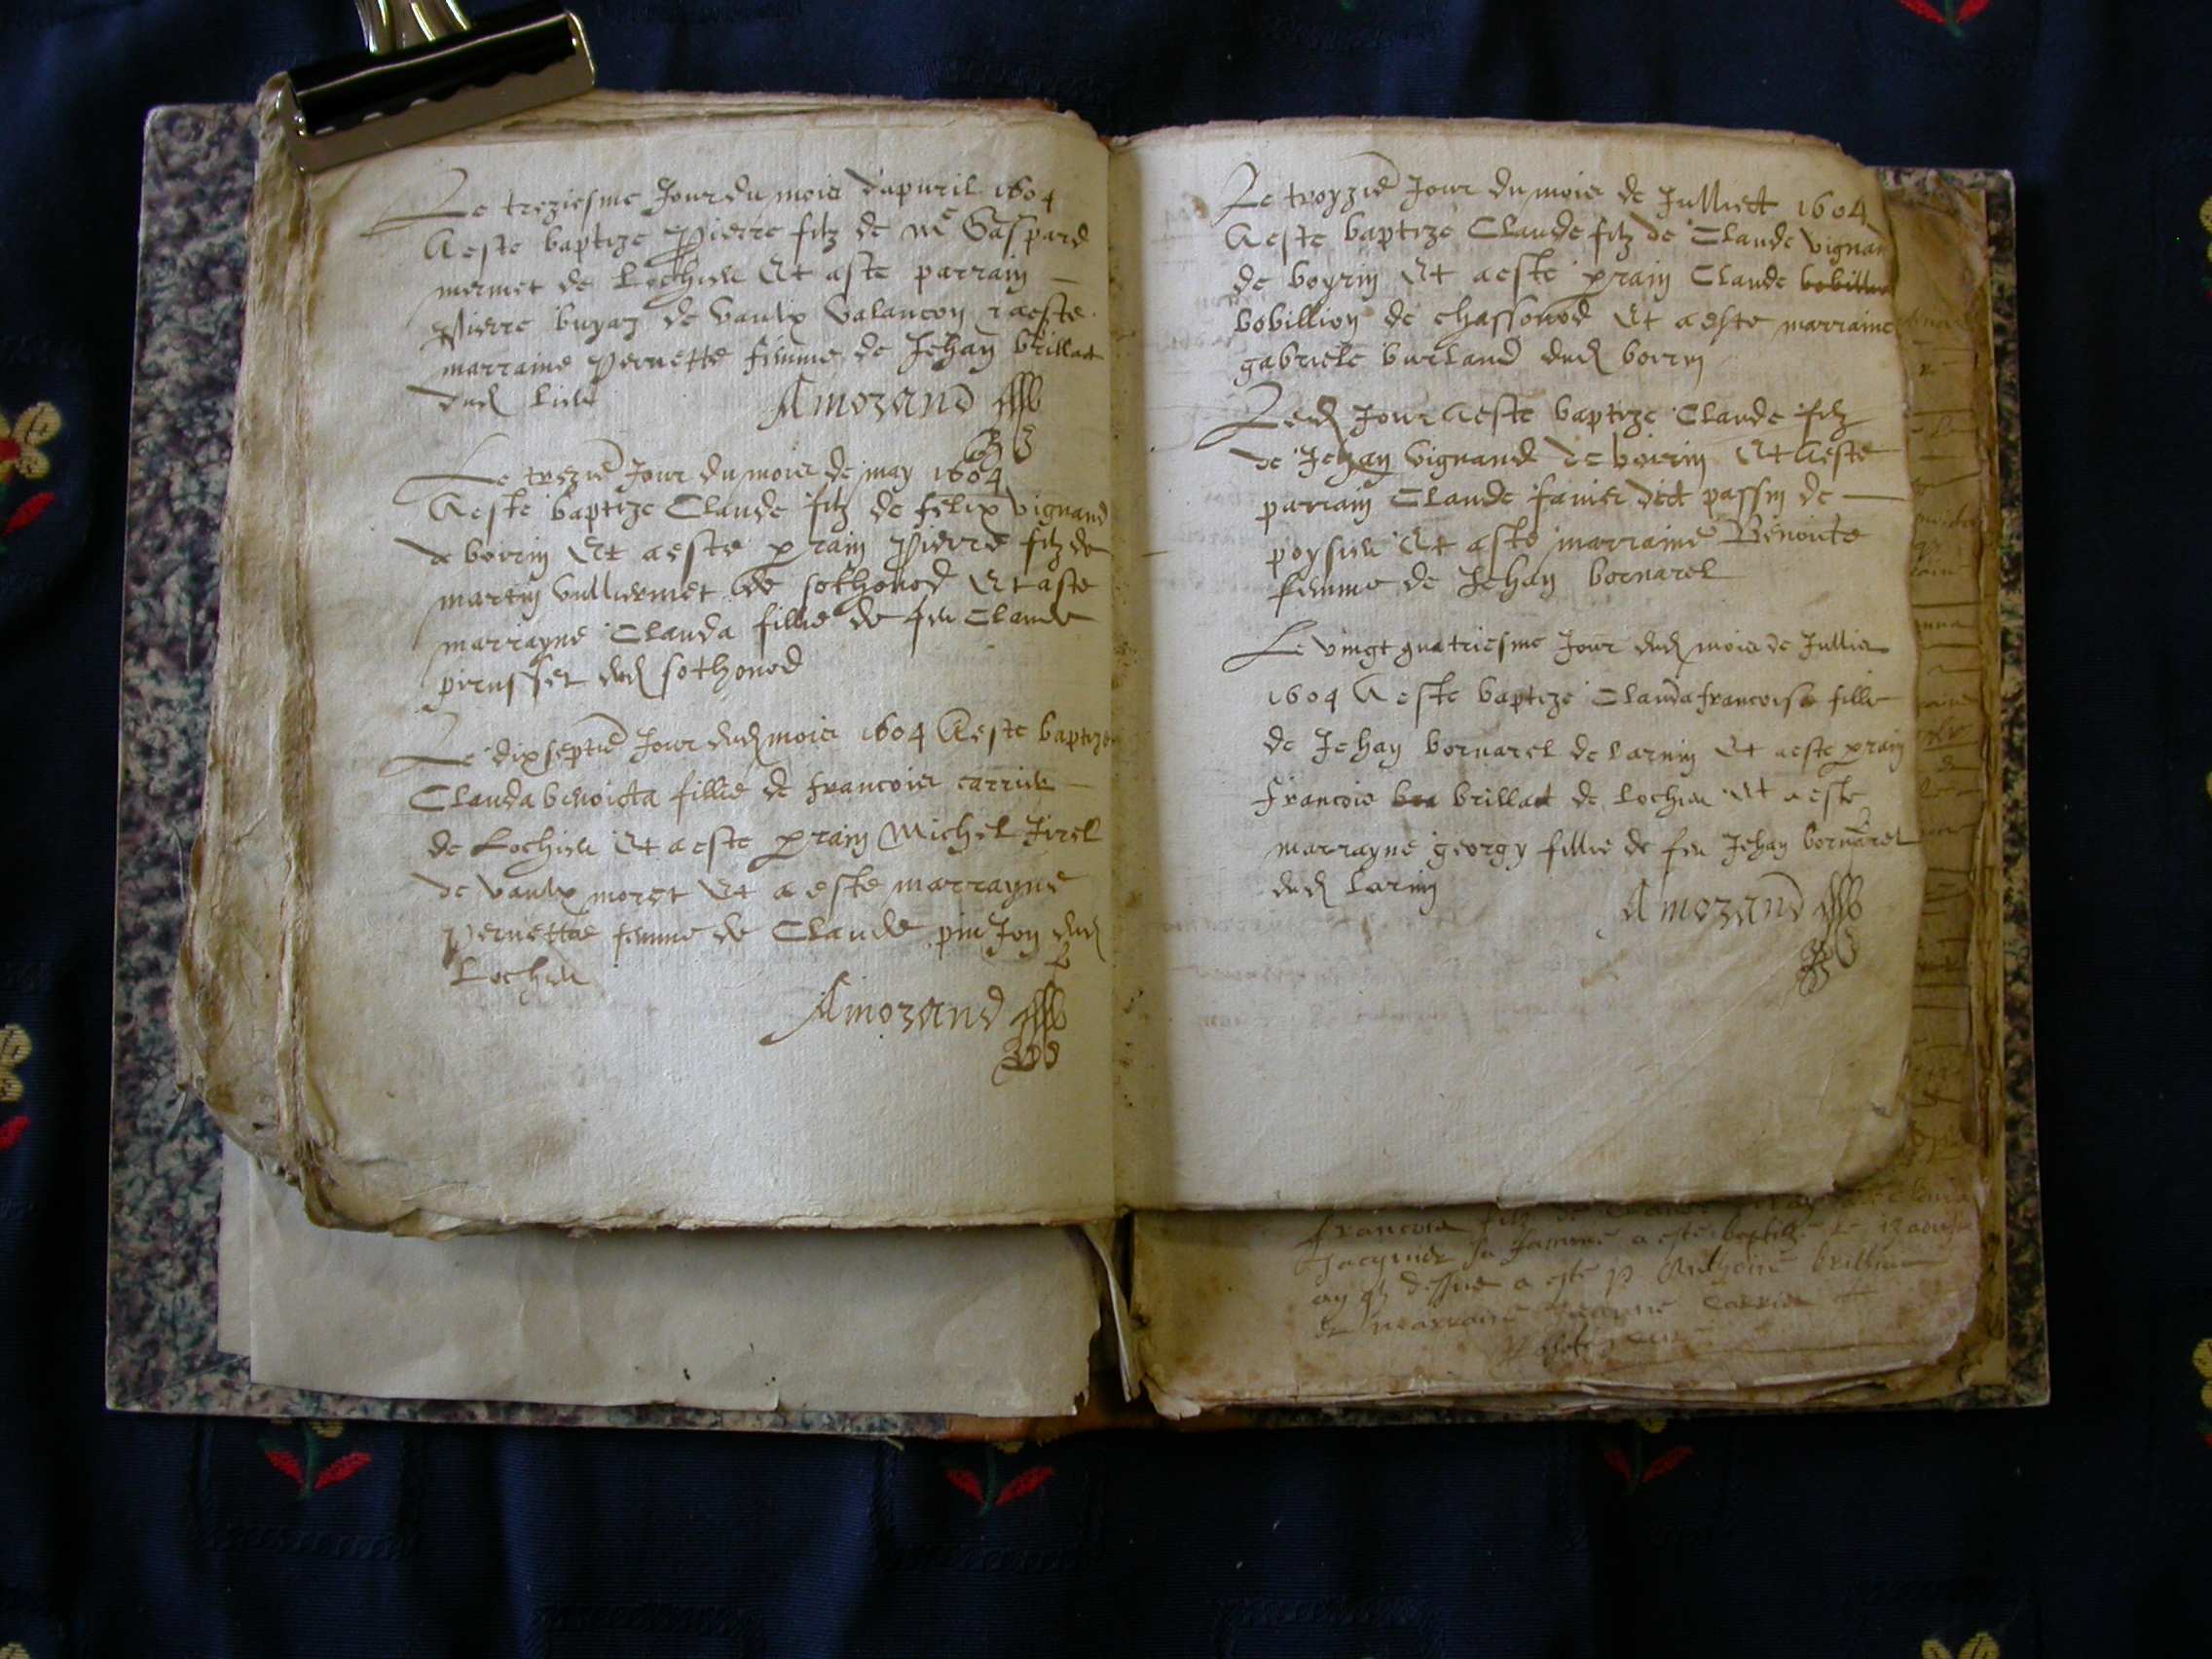 Le treziesme Jour du mois dapuril 1604
A este baptize Pierre filz de Me Gaspard
mermet de Lochieu Et a este parrain
Pierre buyaz de Vaulx Valancon & a este
marraine pernette femme de Jehan brillat
dud lieu
Amozand
Le trezie Jour du mois de may 1604
A este baptize Claude filz de felix vignand
de boirin Et a este prain pierre filz de
martin vulliermet de sothonod Et a este
marrayne Clauda fillie de feu Claude
pirusset dud sothonod
Le dixseptie Jour dud mois 1604 A este baptize
Clauda benoicta fillie de francois carrier
de Lochieu Et a este prain Michel Jirel
de Vaulx moret Et a este marrayne
pernettae femme de Claude pin Jon dud
Lochieu
Amozand
Le troyzie Jour du mois de Julliett 1604
A este baptize Claude filz de Claude vignand
de boyrin Et a este prain Claude
bobillion de chassonod Et a este marraine
gabriele burland dud boirin
Led Jour A este baptize Claude filz
de Jehan vignand de boirin Et A este
parrain Claude fanier dict passin de
poysieu Et a este marraine Benoite
femme de Jehan bornarel
Le vingt quatriesme Jour dud mois de Jullier
1604 A este baptize Clauda francoise fillie
de Jehan bornarel de larnin Et a este prain
francois brillat de Lochieu Et a este
marrayne georgy fillie de feu Jehan bornarel
dud larnin
Amozand
francois filz de Claude
sa famme a este baptize le 12
an q dessus a este p Anthoine
et marraine Jeanne Carrier